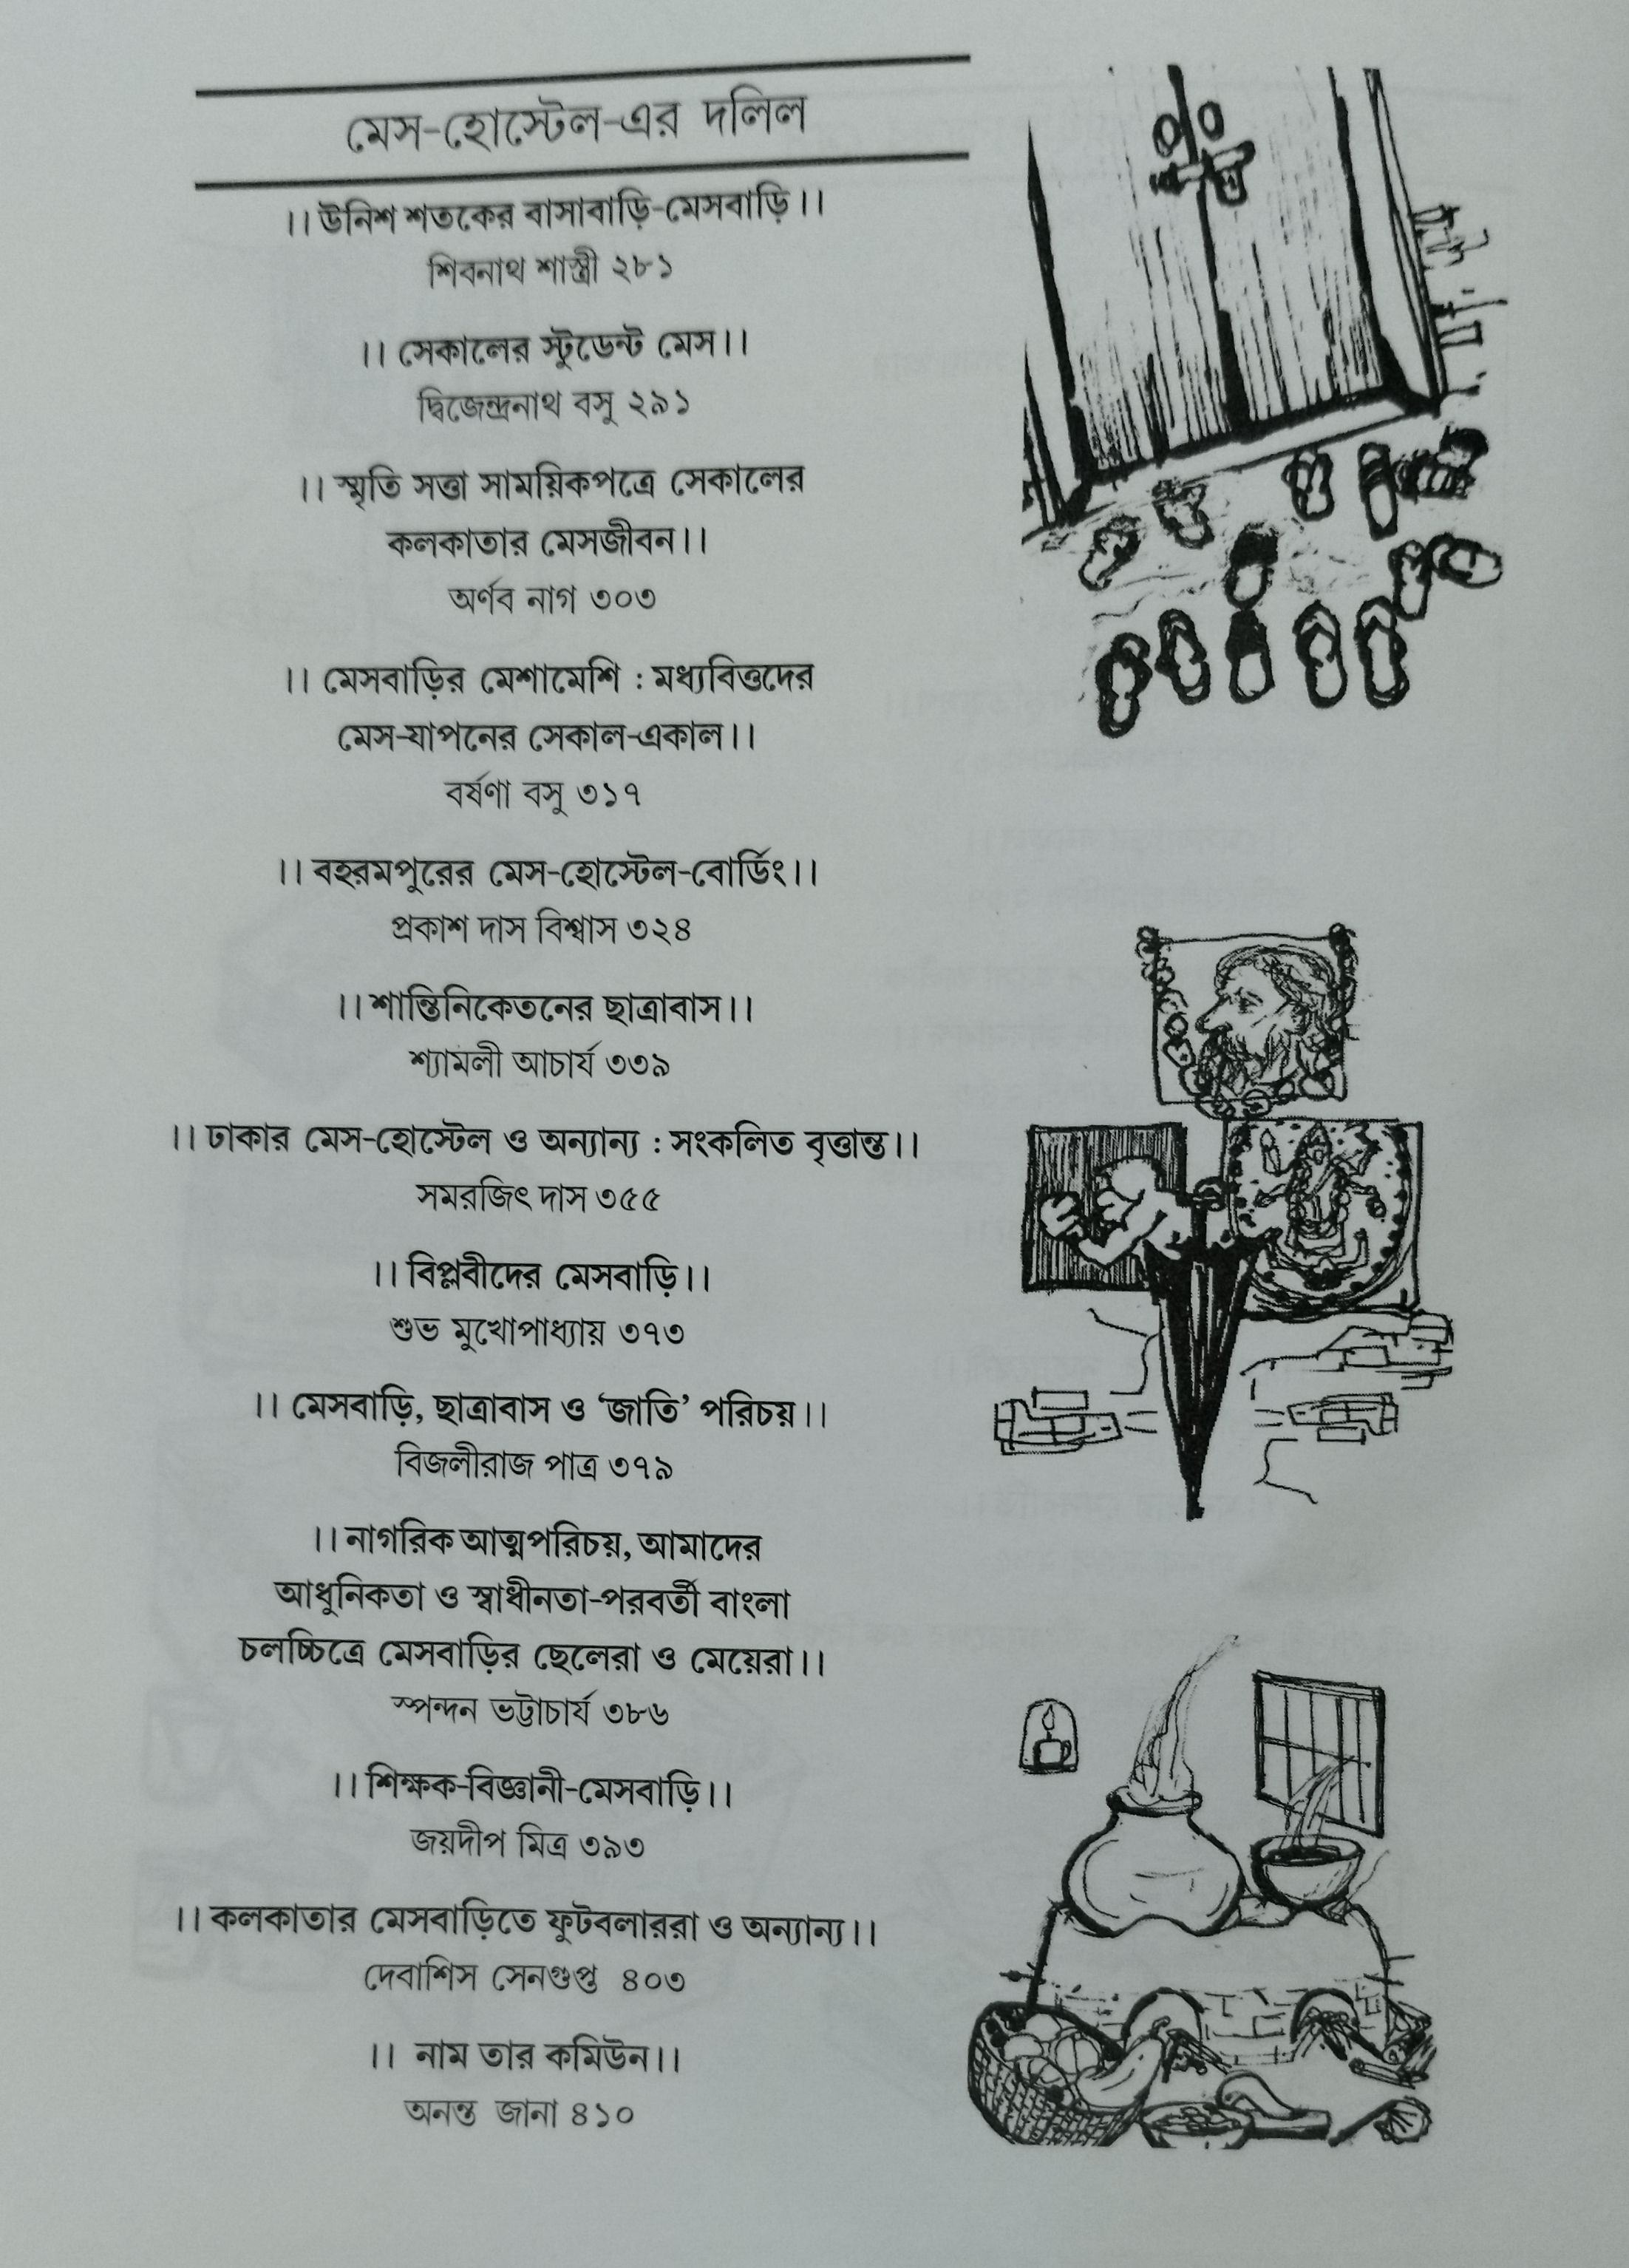 মেস-হোস্টেল-এর দলিল
।। উনিশ শতকের বাসাবাড়ি-মেসবাড়ি।।
শিবনাথ শাস্ত্রী ২৮১
।। সেকালের স্টুডেন্ট মেস।।
দ্বিজেন্দ্রনাথ বসু ২৯১
।। স্মৃতি সত্তা সাময়িকপত্রে সেকালের
কলকাতার মেসজীবন।।
অর্ণব নাগ ৩০৩
।। মেসবাড়ির মেশামেশি : মধ্যবিত্তদের
মেস-যাপনের সেকাল-একাল।।
বর্ষণা বসু ৩১৭
।। বহরমপুরের মেস-হোস্টেল-বোর্ডিং।।
প্রকাশ দাস বিশ্বাস ৩২৪
।। শান্তিনিকেতনের ছাত্রাবাস।।
শ্যামলী আচার্য ৩৩৯
।। ঢাকার মেস-হোস্টেল ও অন্যান্য : সংকলিত বৃত্তান্ত।।
সমরজিৎ দাস ৩৫৫
।। বিপ্লবীদের মেসবাড়ি।।
শুভ মুখোপাধ্যায় ৩৭৩
।। মেসবাড়ি, ছাত্রাবাস ও ‘জাতি’ পরিচয়।।
বিজলীরাজ পাত্র ৩৭৯
।। নাগরিক আত্মপরিচয়, আমাদের
আধুনিকতা ও স্বাধীনতা-পরবর্তী বাংলা
চলচ্চিত্রে মেসবাড়ির ছেলেরা ও মেয়েরা।।
স্পন্দন ভট্টাচার্য ৩৮৬
।। শিক্ষক-বিজ্ঞানী-মেসবাড়ি।।
জয়দীপ মিত্র ৩৯৩
।। কলকাতার মেসবাড়িতে ফুটবলাররা ও অন্যান্য।।
দেবাশিস সেনগুপ্ত ৪০৩
।। নাম তার কমিউন।।
অনন্ত জানা ৪১০